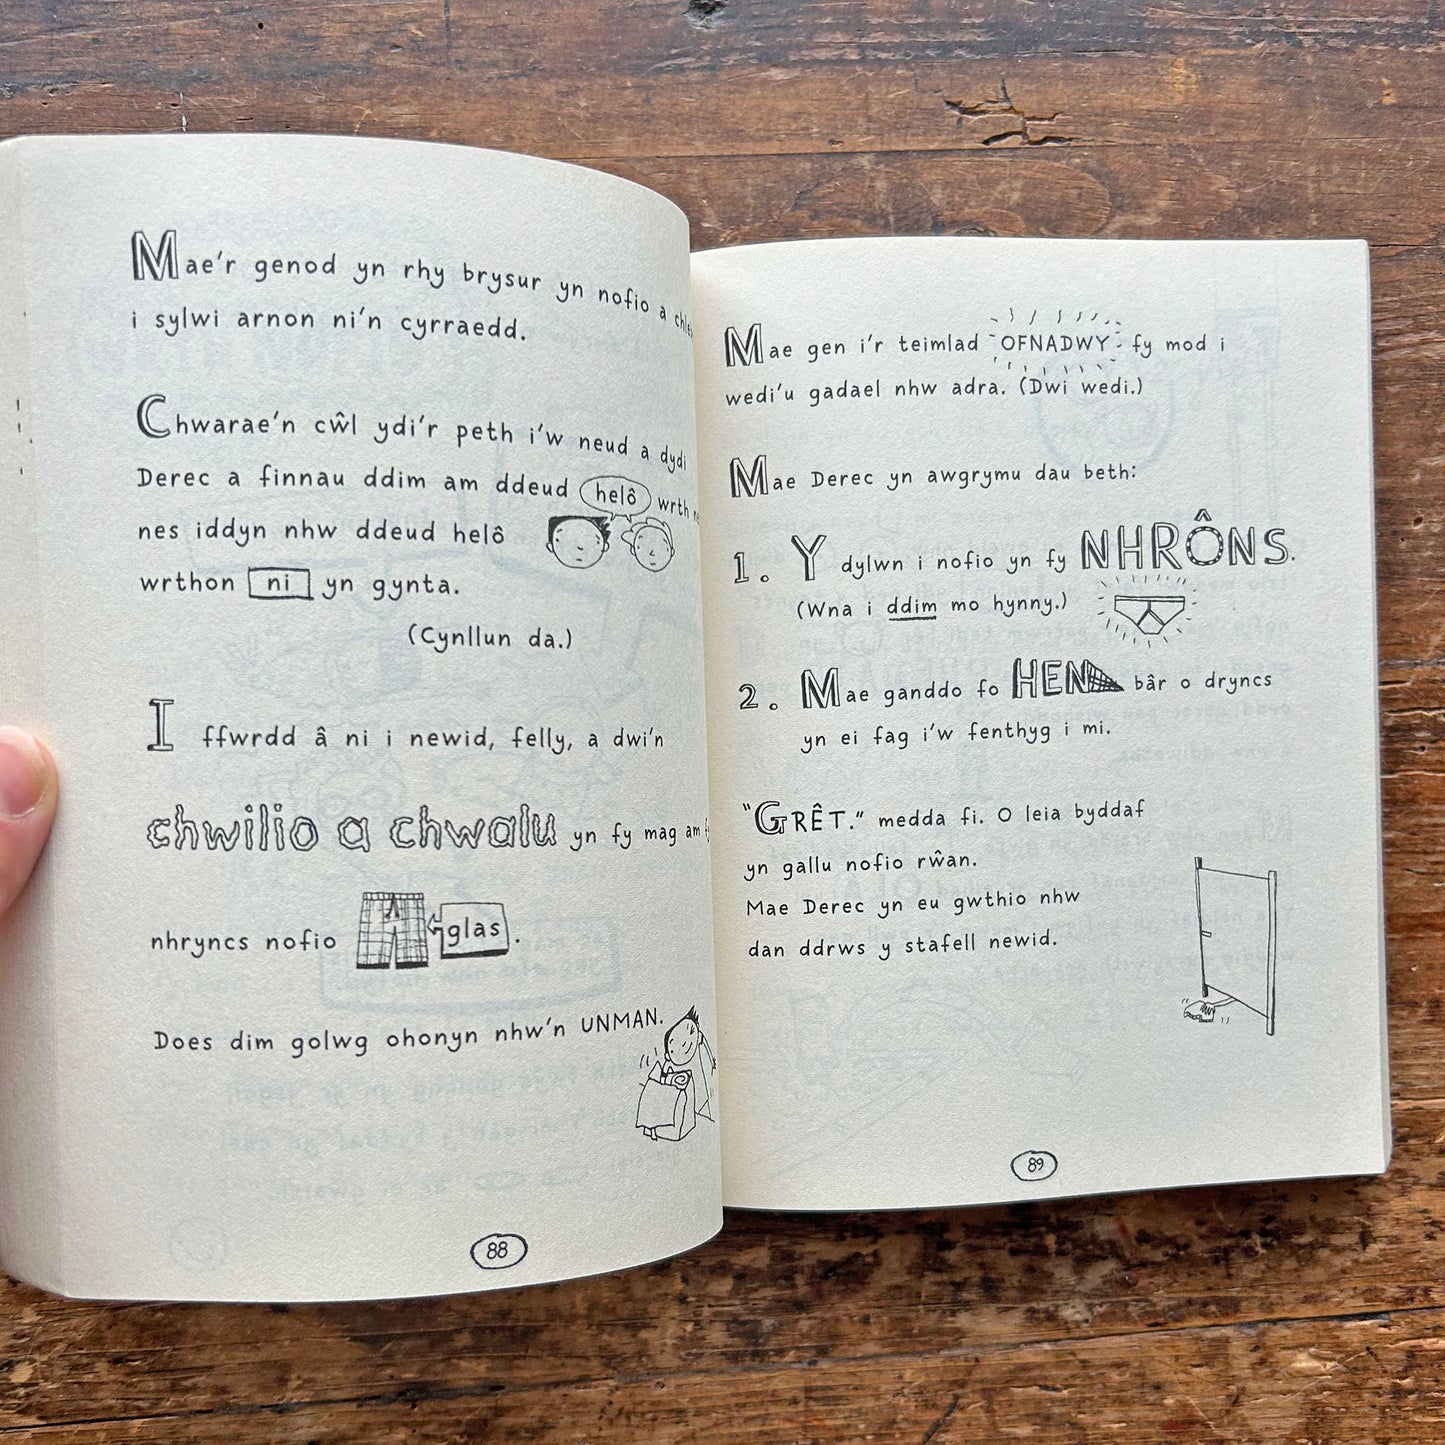 Mae'r genod yn rhy brysur yn nofio a
i sylwi arnon ni'n cyrraedd.
Chwarae'n cŵl ydi'r peth i'w neud a dydi
Derec a finnau ddim am ddeud helô wrth
nes iddyn nhw ddeud helô
wrthon ni yn gynta.
(Cynllun da.)
I ffwrdd â ni i newid, felly, a dwi'n
chwilio a chwalu yn fy mag am
nhryncs nofio glas.
Does dim golwg ohonyn nhw'n UNMAN.
88
Mae gen i'r teimlad OFNADWY fy mod i
wedi'u gadael nhw adra. (Dwi wedi.)
Mae Derec yn awgrymu dau beth:
1. Y dylwn i nofio yn fy NHRÔNS.
(Wna i ddim mo hynny.)
2. Mae ganddo fo HEN bâr o dryncs
yn ei fag i'w fenthyg i mi.
"GRÊT." medda fi. O leia byddaf
yn gallu nofio rŵan.
Mae Derec yn eu gwthio nhw
dan ddrws y stafell newid.
89